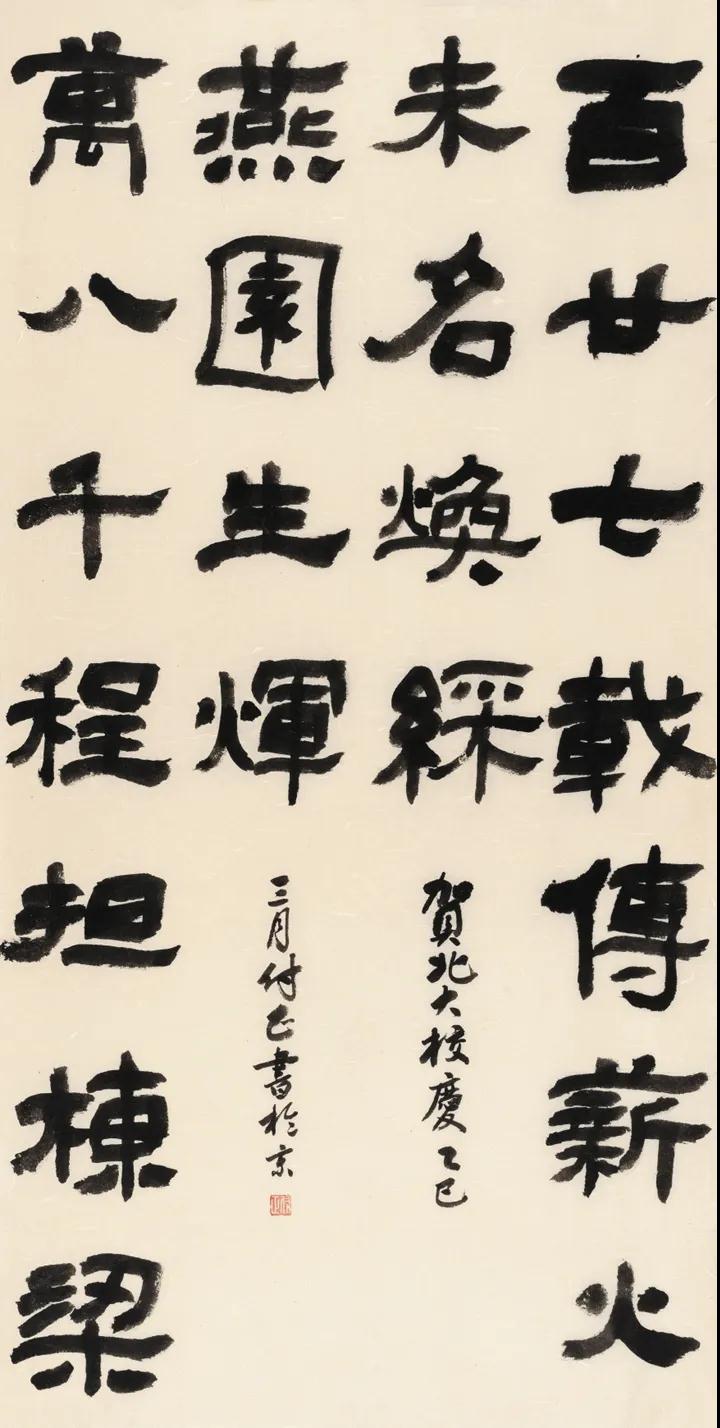 百廿七載傳薪火
未名煥綵
賀北大校慶乙巳
燕園生輝
三月付正書於京
萬八千程担棟梁